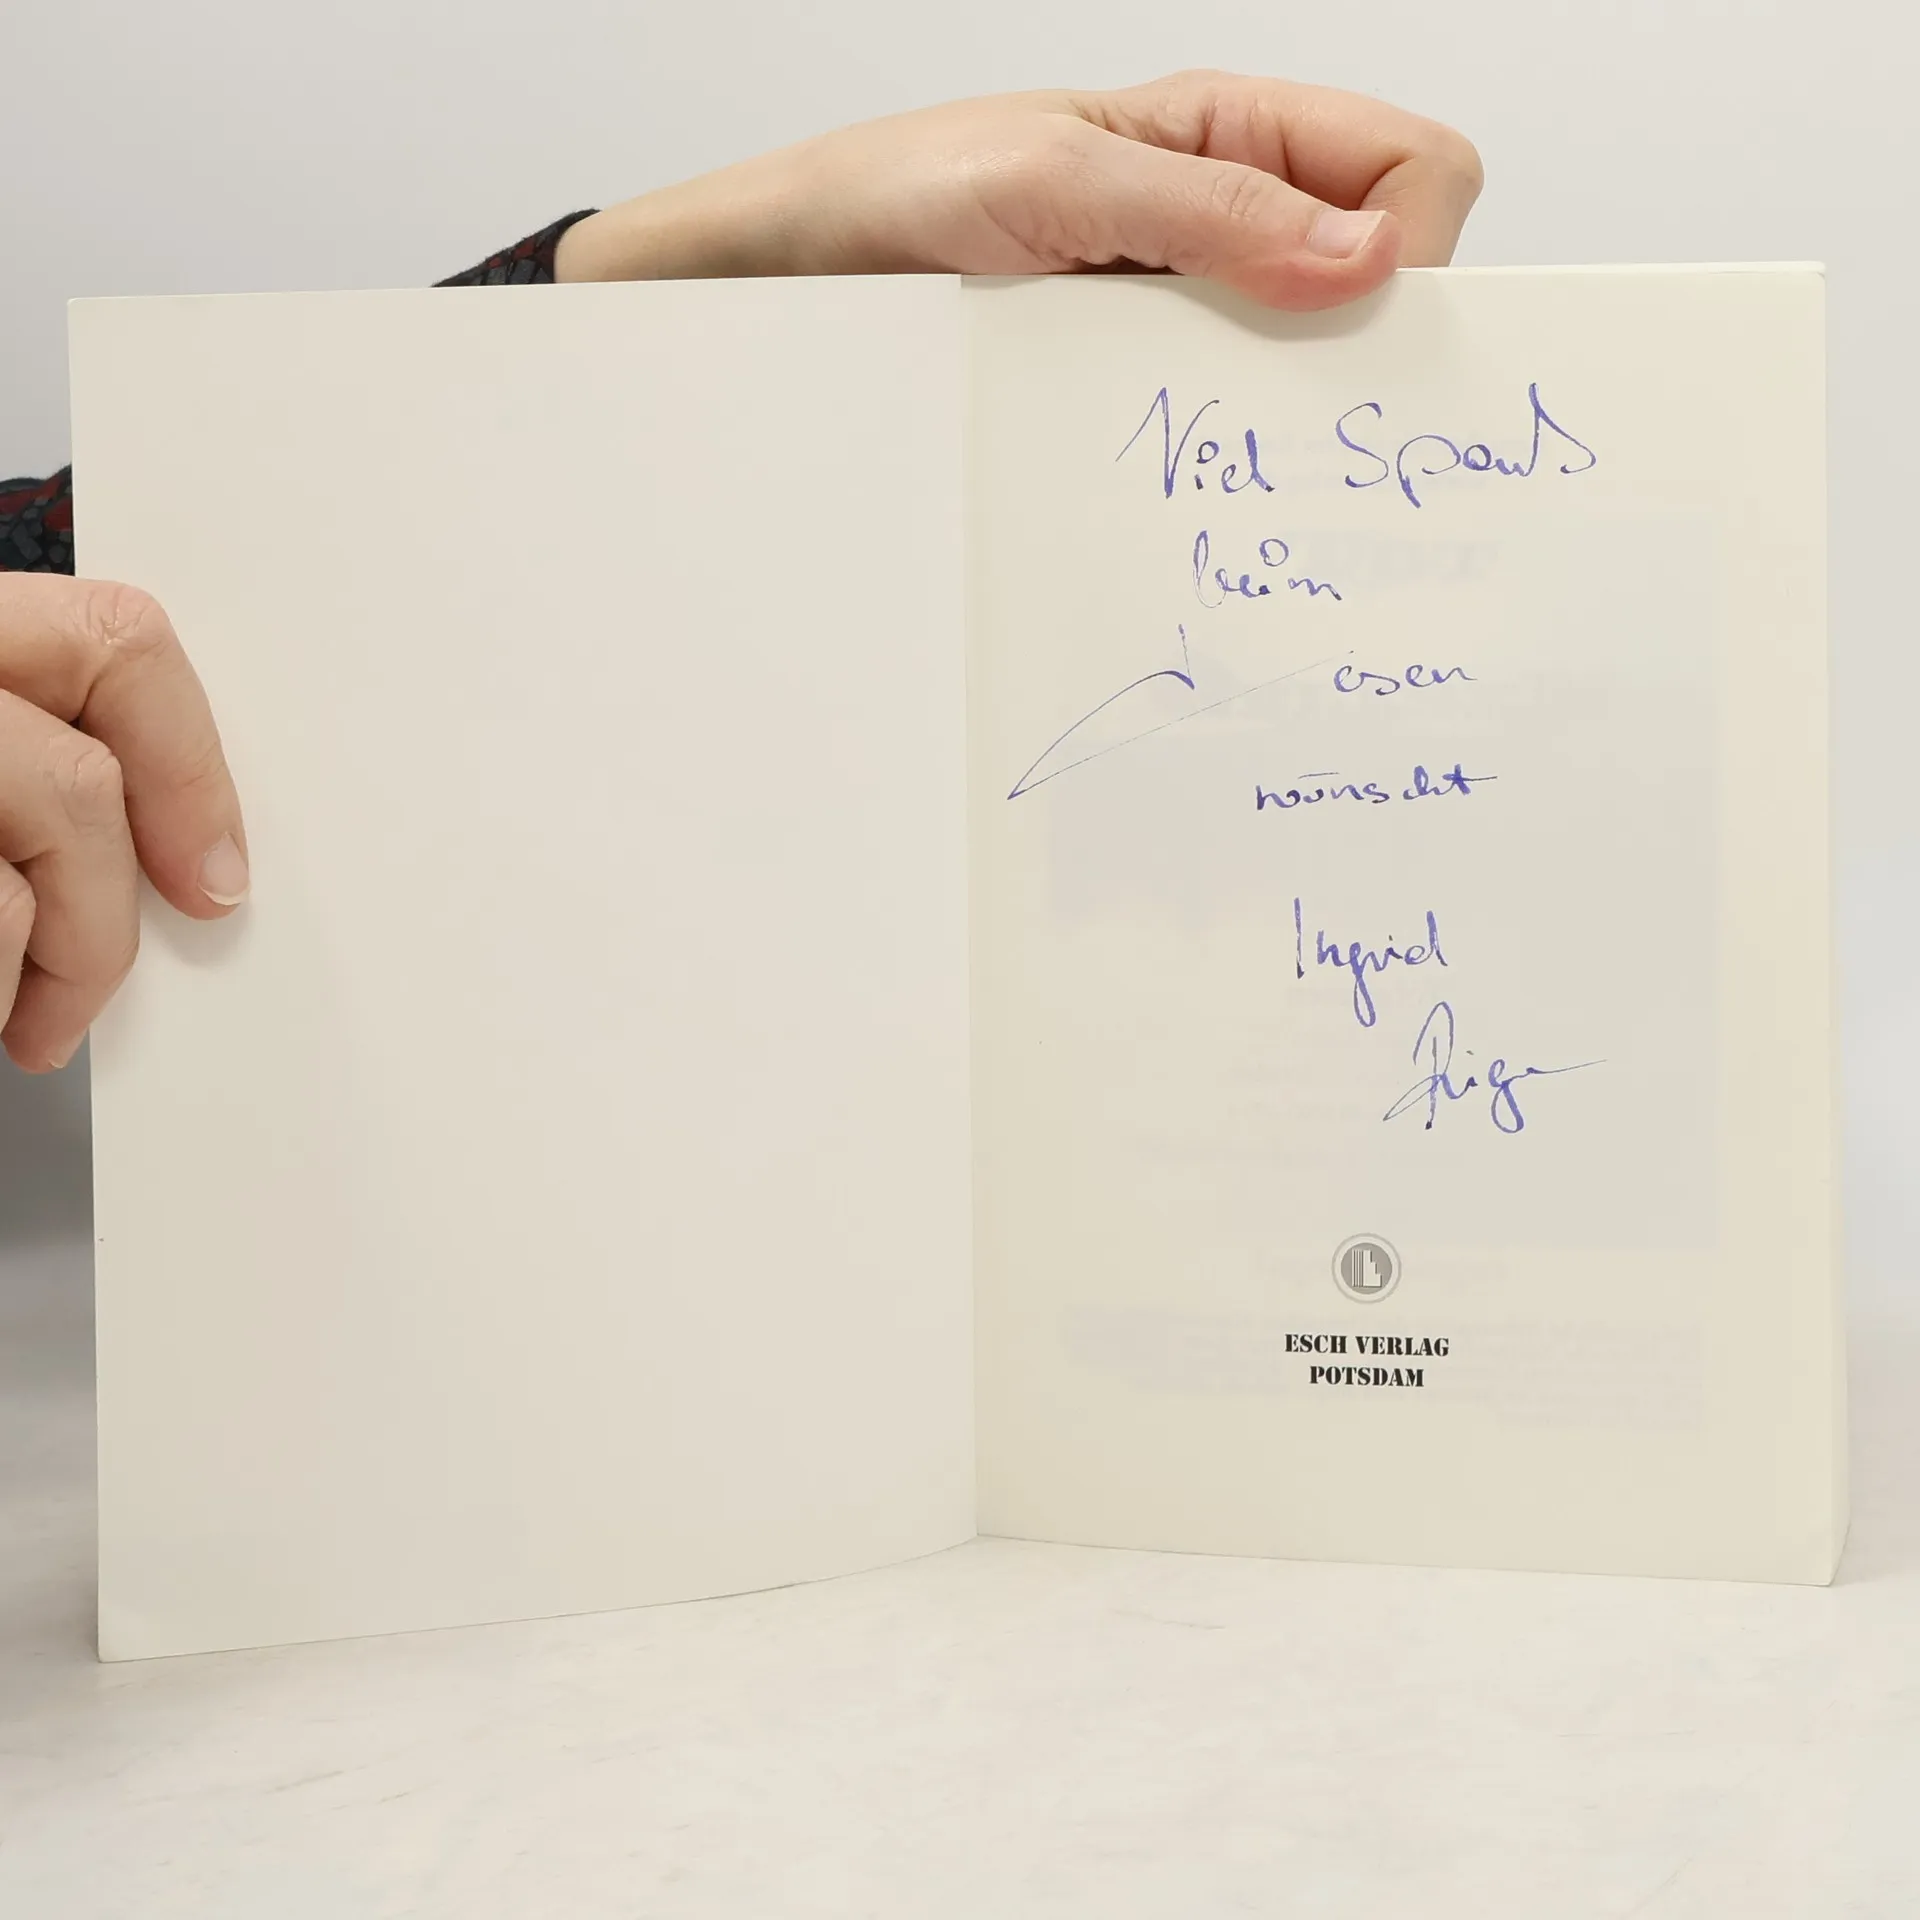 Viel Spaß
beim
Lesen
wünscht
Ingrid
ESCH VERLAG
POTSDAM